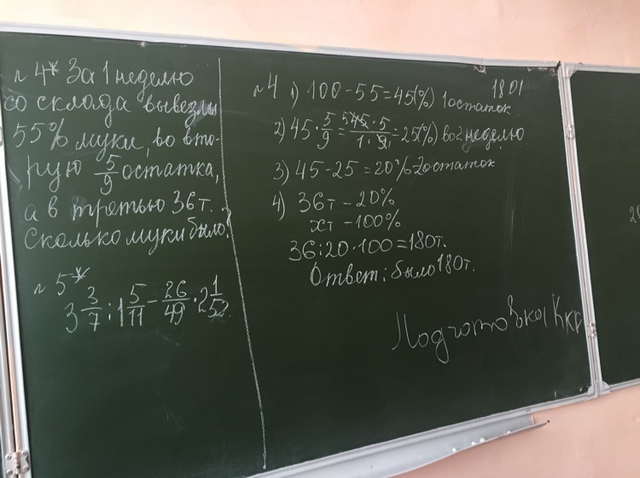 № 4* За 1 неделю
со склада вывезли
55% муки, во вто-
рую 5/9 остатка,
а в третью 36т.
Сколько муки было?
№ 5*
3 3/7 : 1 5/11 - 26/49 · 2 1/52
18 01
№ 4 1) 100-55=45(%) 1остаток
2) 45 · 5/9 = 45·5/1·9 = 25(%) во 2 неделю
3) 45-25=20% 2остаток
4) 36т - 20%
хт - 100%
36:20·100=180т.
Ответ: было 180т.
Подготовка к кр